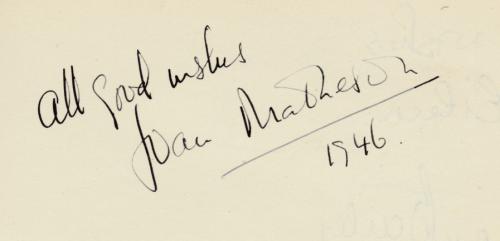 All good wishes
Joan Matheson
1946.